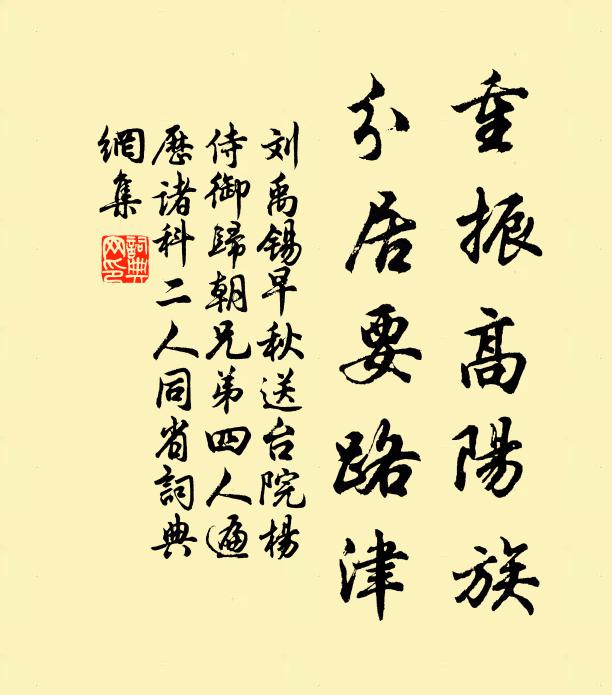 重振高陽族
分居要路津
刘禹锡早秋送台院楊
侍御歸朝兄弟四人遍
歷诸科二人同省詞典
網集
詞典網印